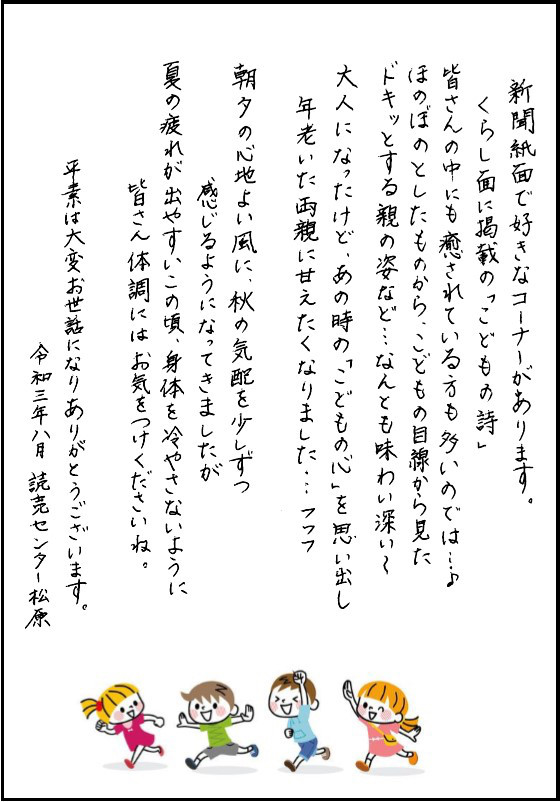 新聞紙面で好きなコーナーがあります。
くらし面に掲載の「こどもの詩」
皆さんの中にも癒されている方も多いのでは…♪
ほのぼのとしたものから、こどもの目線から見た
ドキッとする親の姿など…なんとも味わい深い〜
大人になったけど、あの時の「こどもの心」を思い出し
年老いた両親に甘えたくなりました…フフフ
朝夕の心地よい風に、秋の気配を少しずつ
感じるようになってきましたが
夏の疲れが出やすいこの頃、身体を冷やさないように
皆さん体調にはお気をつけくださいね。
平素は大変お世話になりありがとうございます。
令和三年八月 読売センター松原